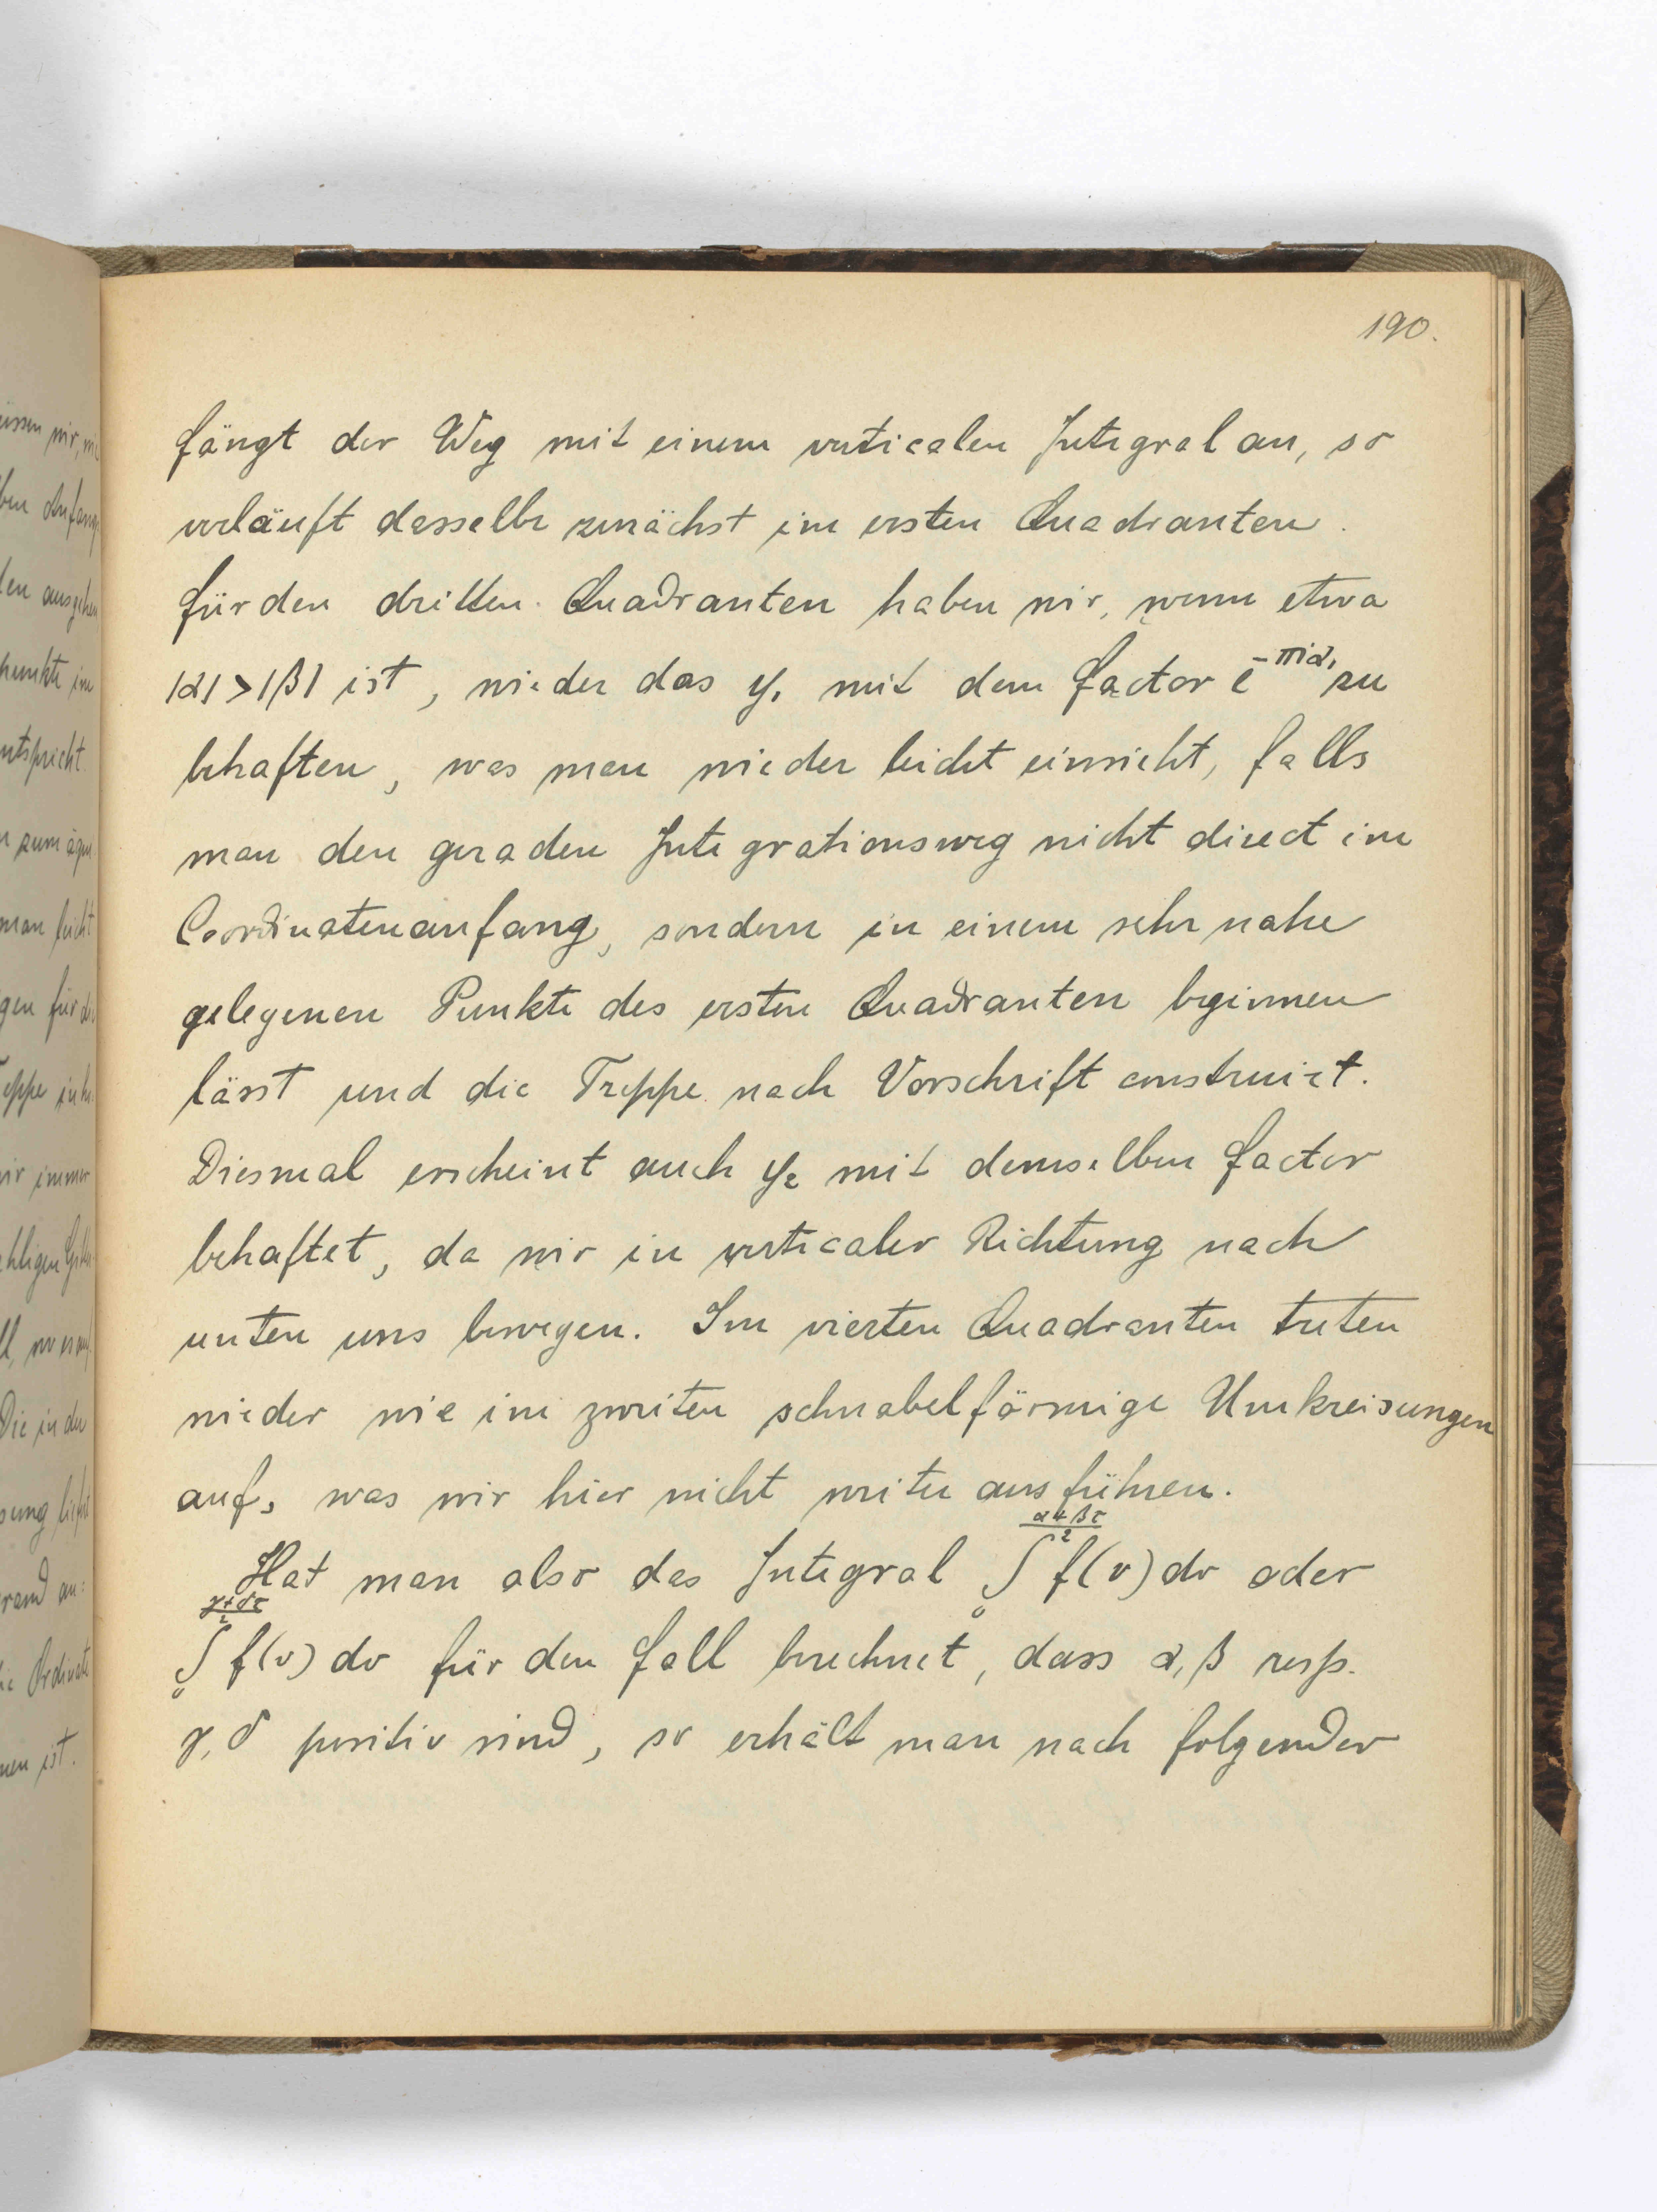 190.
fängt der Weg mit einem verticalen Integral an, so
verläuft dasselbe zunächst im ersten Quadranten.
Für den dritten Quadranten haben wir, wenn etwa
|α|>|β| ist, wieder das y₁ mit dem Factor e^{-πiα₁} zu
behaften, was man wieder leicht einsieht, falls
man den geraden Integrationsweg nicht direct im
Coordinatenanfang, sondern in einem sehr nahe
gelegenen Punkte des ersten Quadranten beginnen
lässt und die Treppe nach Vorschrift construirt.
Diesmal erscheint auch y₂ mit demselben Factor
behaftet, da wir in verticaler Richtung nach
unten uns bewegen. Im vierten Quadranten treten
wieder wie im zweiten schnabelförmige Umkreisungen
auf, was wir hier nicht weiter ausführen.
Hat man also das Integral ∫₀^{(α+βτ)/2} f(v)dv oder
∫₀^{(γ+δτ)/2} f(v)dv für den Fall berechnet, dass α, β resp.
γ, δ positiv sind, so erhält man nach folgender